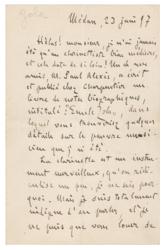 Médan, 23 juin 87
Hélas! monsieur, je n'ai jamais
été qu'un clarinettiste bien médiocre,
et cela date de si loin! Un de mes
amis, M. Paul Alexis, a écrit
et publié chez Charpentier un
livre de notes biographiques,
intitulé: Emile Zola, dans
lequel vous trouverez quelques
détails sur le pauvre musi-
cien que j'ai été.
La clarinette est un instru-
ment merveilleux, qu'on
un peu, je ne sais pour-
quoi. Mais je suis totalement
indigne d'en parler, et je
ne puis que vous louer de